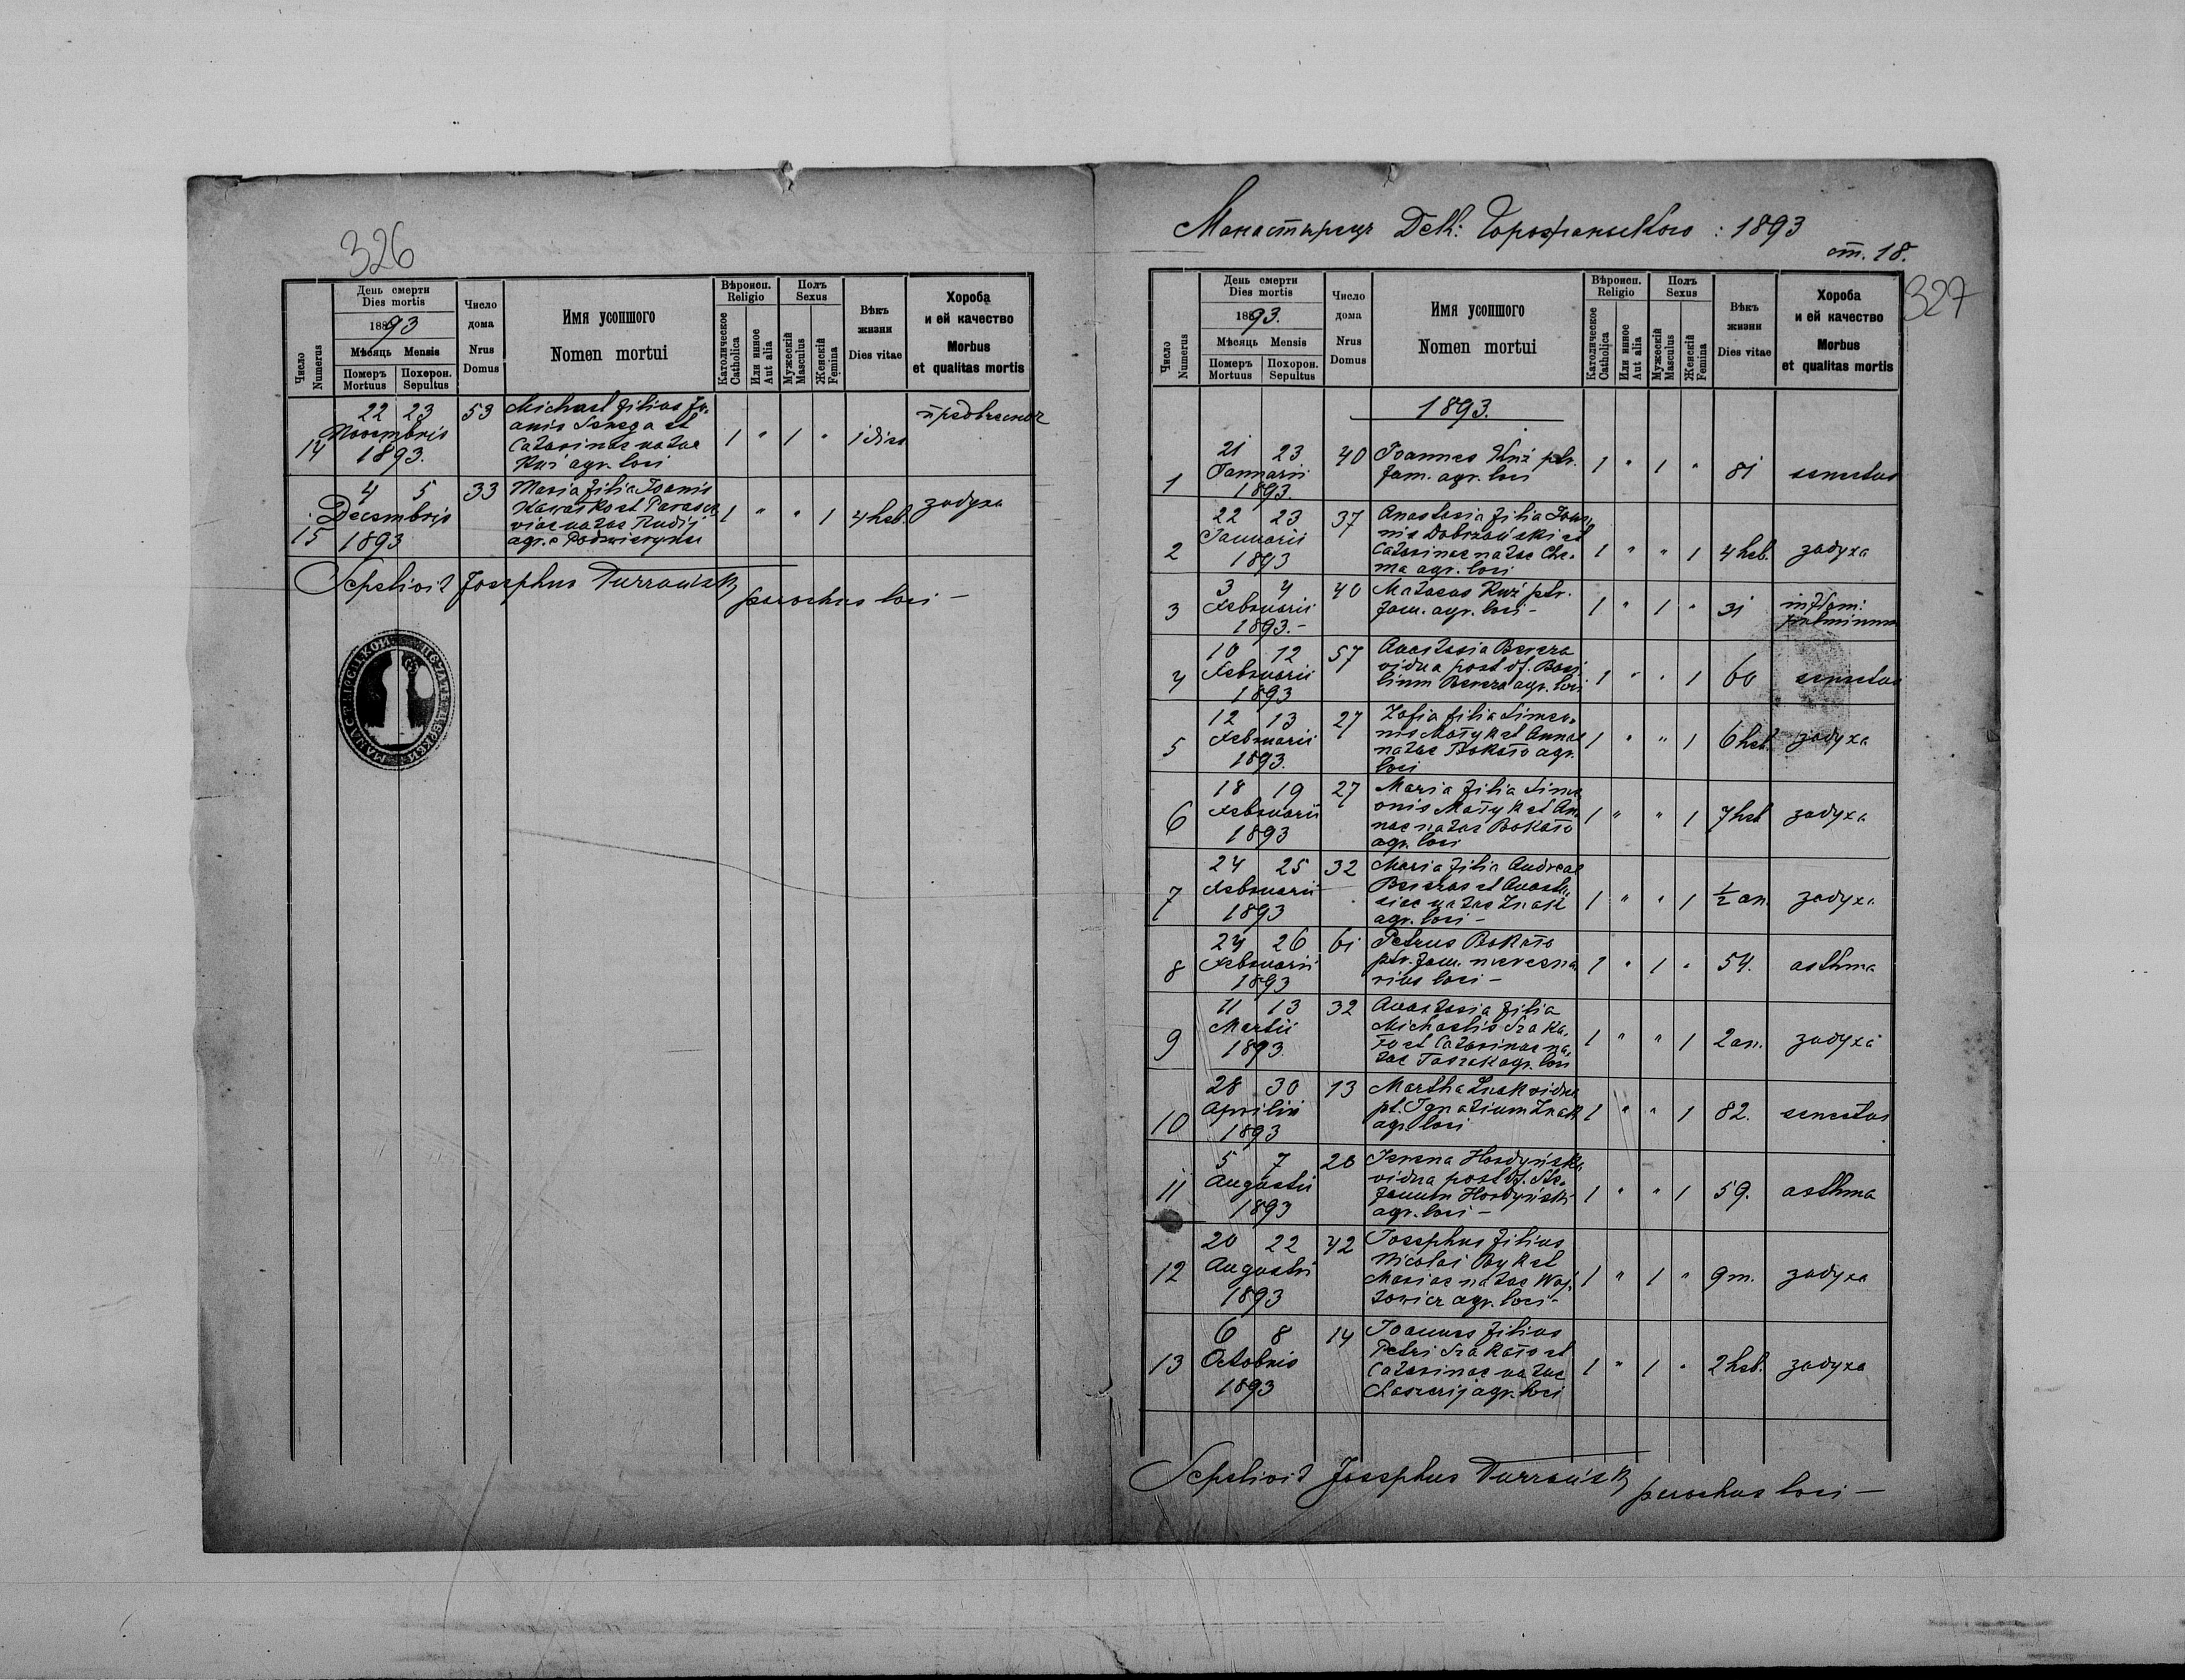 326
Число Numerus
День смерти
Dies mortis
1893
Мѣсяць Mensis
Померъ Mortuus
Похорон. Sepultus
Число дома
Nrus Domus
Имя усопшого
Nomen mortui
Вѣроисп. Religio
Католическое Catholica
Или иное Aut alia
Полъ Sexus
Мужескій Masculus
Женскій Femina
Вѣкъ жизни
Dies vitae
Хороба и ей качество
Morbus et qualitas mortis
14
22 23
Novembris
1893.
53
Michael filius Jo-
anis Senega et
Catarinae natae
Kuź agr. loci
1 " 1 "
1 dies
15
4 5
Decembris
1893
33
Maria filia Joanis
Kawasko et Parasce
viae natae Rudij
agr. e Podzwierzyniec
1 " " 1
4 heb.
задуха
Sepelivit Josephus Turzański
parochus loci —
Манастырець Дек: Горожаньского : 1893
ст. 18.
327
Число Numerus
День смерти
Dies mortis
1893.
Мѣсяць Mensis
Померъ Mortuus
Похорон. Sepultus
Число дома
Nrus Domus
Имя усопшого
Nomen mortui
Вѣроисп. Religio
Католическое Catholica
Или иное Aut alia
Полъ Sexus
Мужескій Masculus
Женскій Femina
Вѣкъ жизни
Dies vitae
Хороба и ей качество
Morbus et qualitas mortis
1893.
1
21 23
Januarii
1893.
40
Joannes Kuź ptr.
fam. agr. loci
1 " 1 "
81
senectus
2
22 23
Januarii
1893
37
Anastasia filia Joan-
nis Dobrzański et
Catarinae natae Cho-
ma agr. loci
1 " " 1
4 heb.
задуха
3
3 4
Februarii
1893.-
40
Mataeus Kuź ptr.
fam. agr. loci -
1 " 1 "
31
inflam:
pulminum
4
10 12
Februarii
1893
57
Anastasia Bereza
vidua post df. Basi
lium Bereza agr. loci
1 " " 1
60
senectus
5
12 13
Februarii
1893.
27
Zofia filia Simeo-
nis Małyk et Annae
natae Bokało agr.
loci
1 " " 1
6 heb.
задуха
6
18 19
Februarii
1893
27
Maria filia Sime
onis Małyk et An-
nae natae Bokało
agr. loci
1 " " 1
7 heb
задуха
7
24 25
Februarii
1893
32
Maria filia Andreae
Berezas et Anasta-
siae natae Znak
agr. loci -
1 " " 1
½ an.
задуха
8
24 26
Februarii
1893
61
Petrus Bokało
ptr. fam. mercena
rius loci -
1 " 1 "
54.
asthma
9
11 13
Martii
1893.
32
Anastasia filia
Michaelis Szaka-
ło et Catarinae na-
tae Taszak agr. loci
1 " " 1
2 an.
задуха
10
28 30
Aprilis
1893
13
Martha Znak vidua
pt. Ignatium Znak
agr. loci
1 " " 1
82.
senectus
11
5 7
Augusti
1893
28
Irena Hordyńska
vidua post df. Ste-
fanum Hordyński
agr. loci -
1 " " 1
59.
asthma
12
20 22
Augusti
1893
42
Josephus filius
Nicolai Byk et
Mariae natae Woj-
towicz agr. loci -
1 " 1 "
9 m.
задуха
13
6 8
Octobris
1893
14
Joannes filius
Petri Szakało et
Catarinae natae
agr. loci
1 " 1 "
2 heb.
задуха
Sepelivit Josephus Turzański
parochus loci —